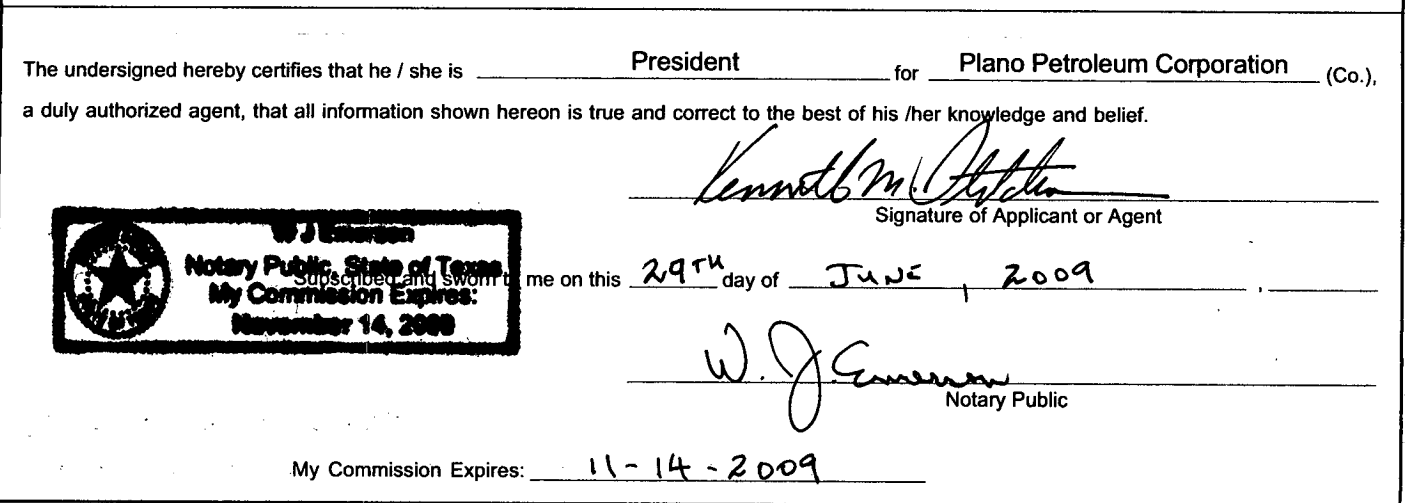 The undersigned hereby certifies that he / she is President for Plano Petroleum Corporation (Co.),
a duly authorized agent, that all information shown hereon is true and correct to the best of his /her knowledge and belief.
Kenneth M.
Signature of Applicant or Agent
W J Emerson
Notary Public, State of Texas
Subscribed and sworn to me on this 29TH day of JUNE, 2009 ,
My Commission Expires:
November 14, 2009
W. J. Emerson
Notary Public
My Commission Expires: 11-14-2009